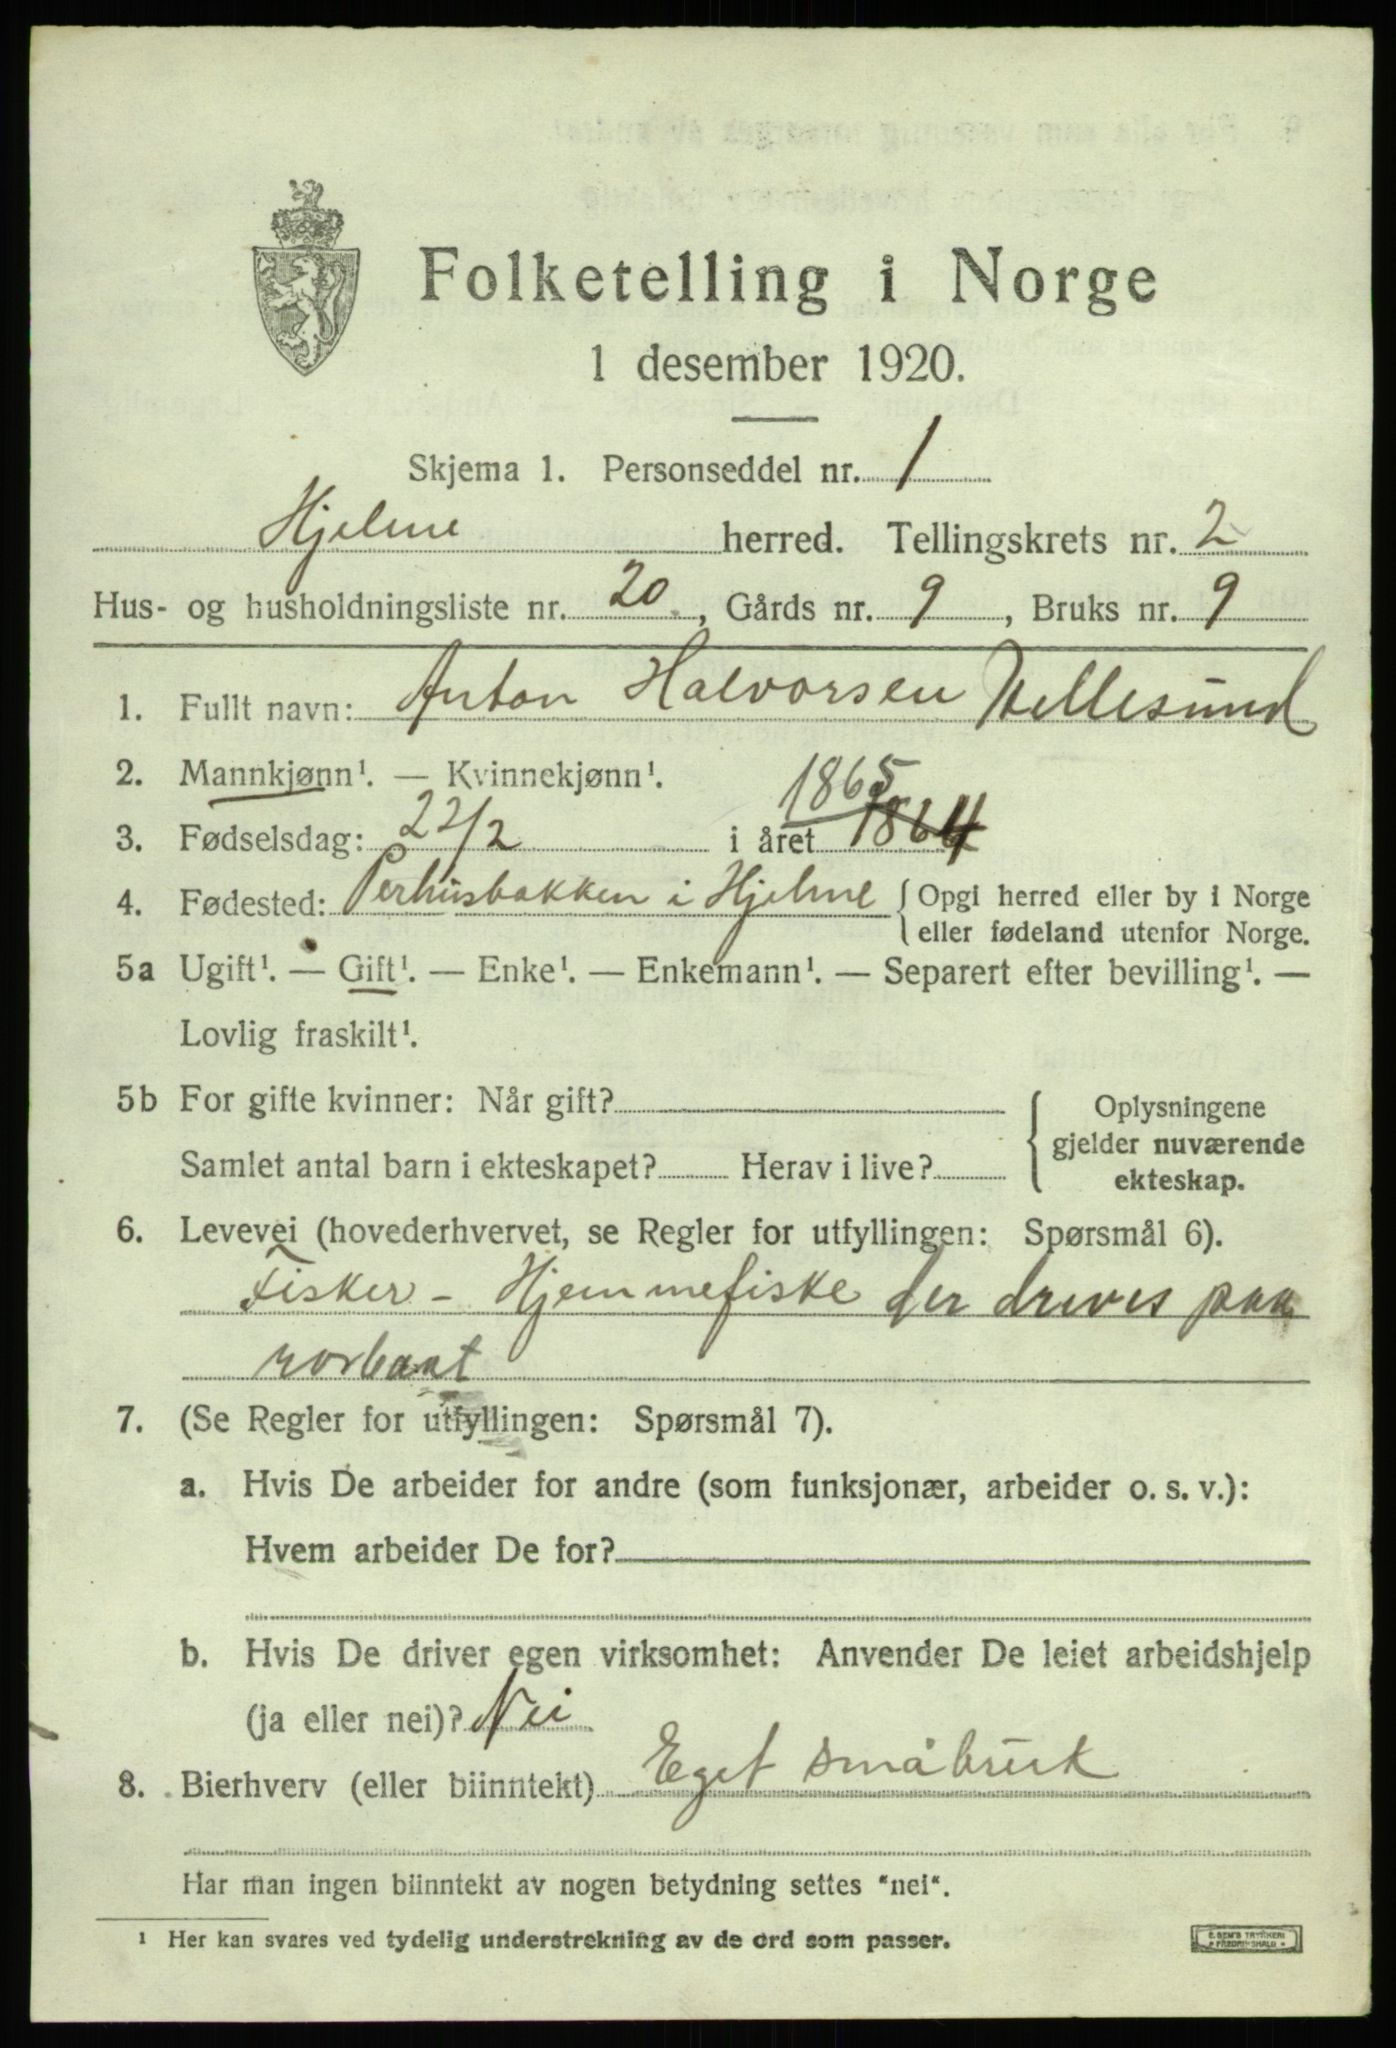 Folketelling i Norge
1 desember 1920.
Skjema 1. Personseddel nr. 1
Hjelme herred. Tellingskrets nr. 2
Hus- og husholdningsliste nr. 20, Gårds nr. 9, Bruks nr. 9
1. Fullt navn: Anton Halvorsen Hellesund
2. Mannkjønn¹. — Kvinnekjønn¹.
1865
3. Fødselsdag: 22/2 i året 1864
4. Fødested: Perhusbakken i Hjelme { Opgi herred eller by i Norge
eller fødeland utenfor Norge.
5a Ugift¹. — Gift¹. — Enke¹. — Enkemann¹. — Separert efter bevilling¹. —
Lovlig fraskilt¹.
5b For gifte kvinner: Når gift?
Samlet antal barn i ekteskapet? Herav i live?
{ Oplysningene
gjelder nuværende
ekteskap.
6. Levevei (hovederhvervet, se Regler for utfyllingen: Spørsmål 6).
Fisker - Hjemmefiske der drives paa
rorbaat
7. (Se Regler for utfyllingen: Spørsmål 7).
a. Hvis De arbeider for andre (som funksjonær, arbeider o. s. v.):
Hvem arbeider De for?
b. Hvis De driver egen virksomhet: Anvender De leiet arbeidshjelp
(ja eller nei)? Nei
8. Bierhverv (eller biinntekt) Eget småbruk
Har man ingen biinntekt av nogen betydning settes "nei".
¹ Her kan svares ved tydelig understrekning av de ord som passer.
E. SEM'S TRYKKERI
FREDRIKSHALD